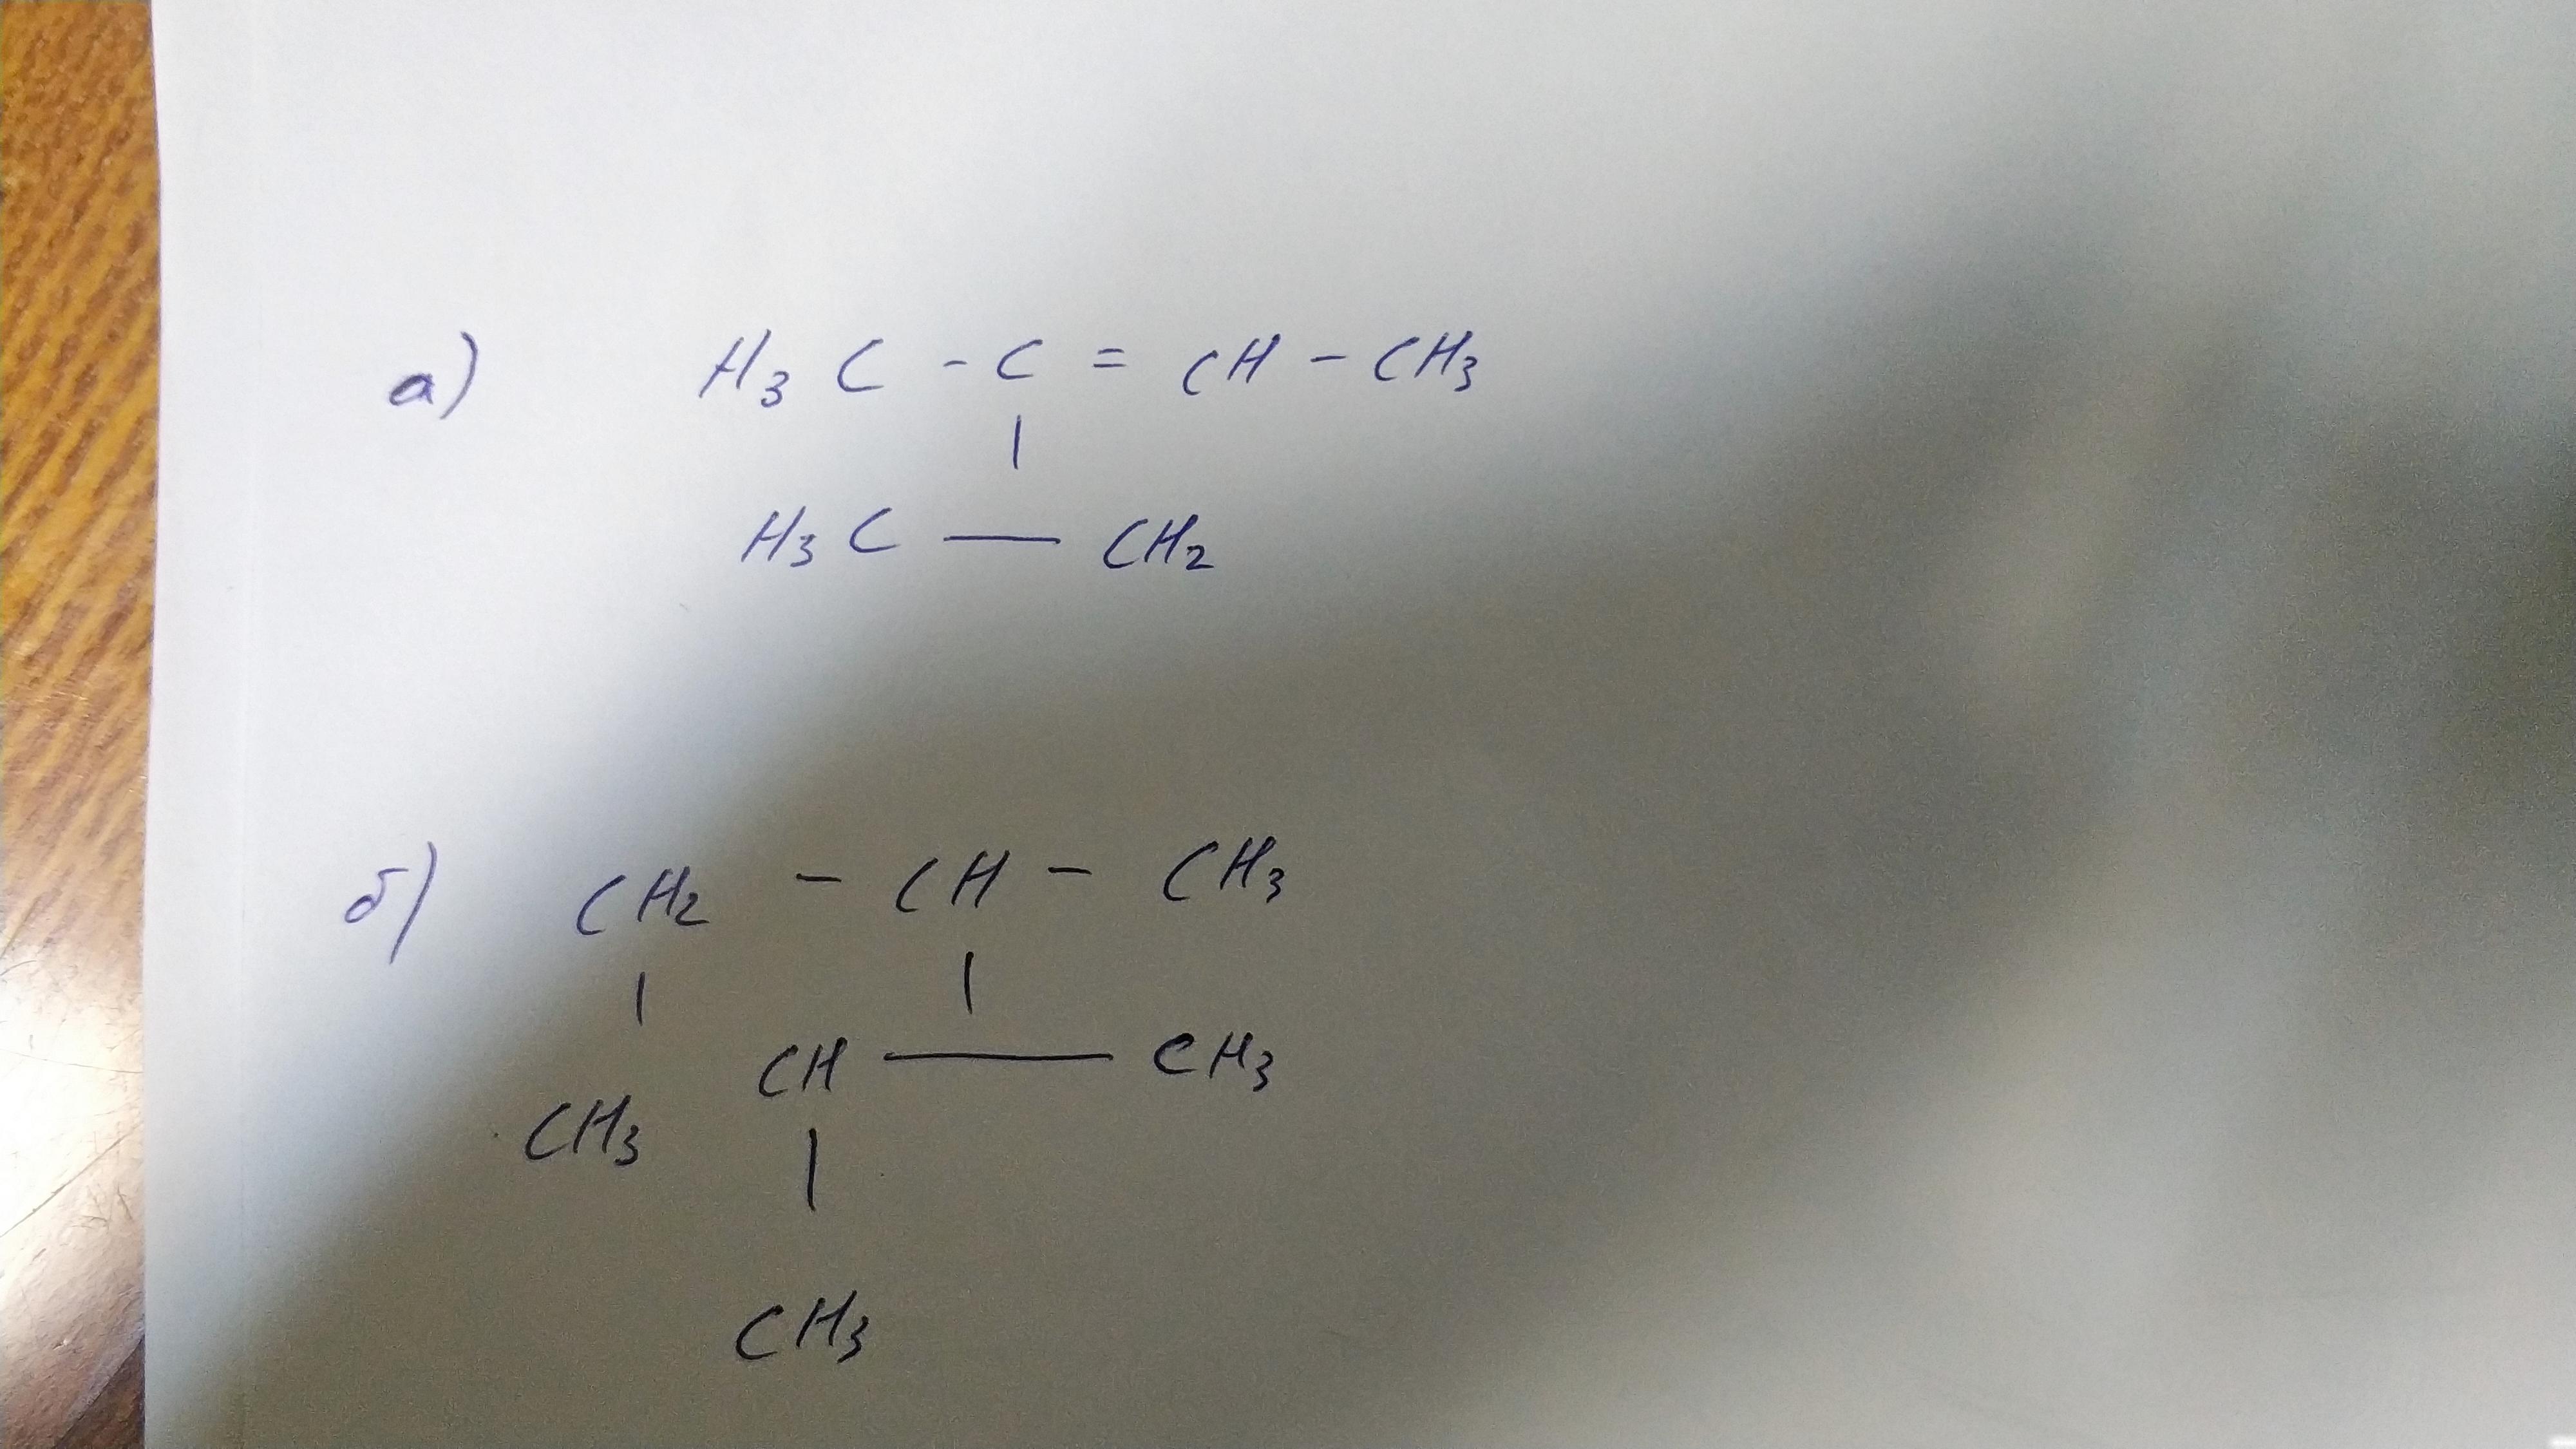 а) H3C - C = CH - CH3
|
H3C — CH2
б) CH2 - CH - CH3
| |
CH — CH3
CH3
|
CH3